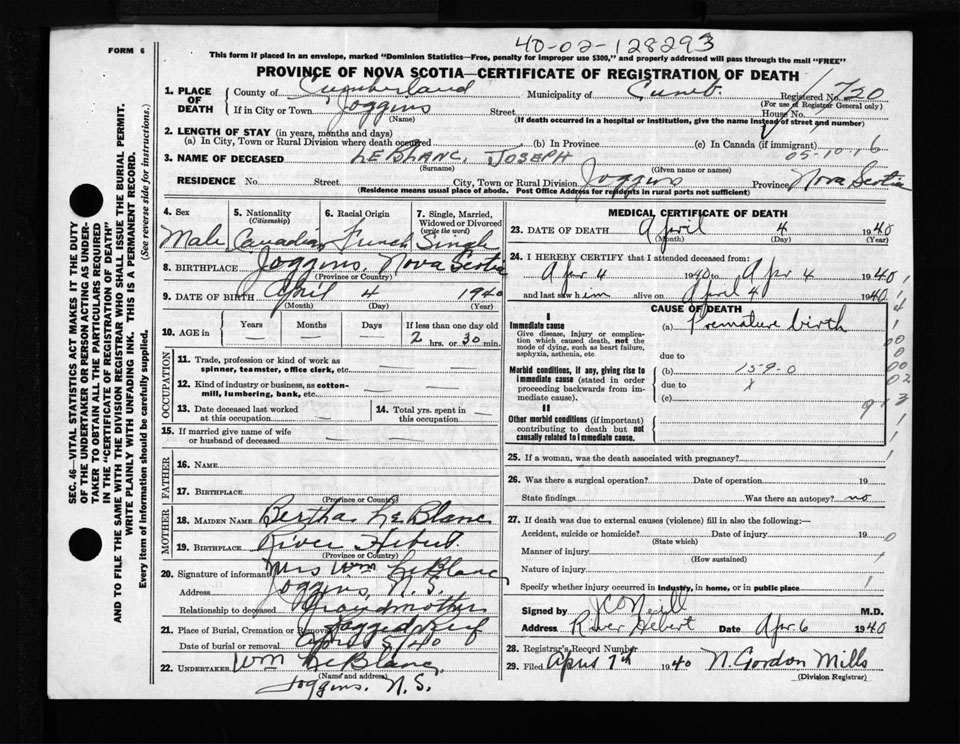 40-02-128293
FORM 6
This form if placed in an envelope, marked "Dominion Statistics—Free, penalty for improper use $300," and properly addressed will pass through the mail "FREE"
PROVINCE OF NOVA SCOTIA—CERTIFICATE OF REGISTRATION OF DEATH
1. PLACE OF DEATH
County of Cumberland Municipality of Cumb. Registered No. 720
(For use of Registrar General only)
If in City or Town Joggins Street House No.
(Name) (If death occurred in a hospital or institution, give the name instead of street and number)
2. LENGTH OF STAY (in years, months and days)
(a) In City, Town or Rural Division where death occurred (b) In Province (c) In Canada (if immigrant)
05-10-16
3. NAME OF DECEASED LEBLANC, JOSEPH
(Surname) (Given name or names)
RESIDENCE No. Street City, Town or Rural Division Joggins Province Nova Scotia
(Residence means usual place of abode. Post Office Address for residents in rural parts not sufficient)
4. Sex Male
5. Nationality (Citizenship) Canadian
6. Racial Origin French
7. Single, Married, Widowed or Divorced (write the word) Single
8. BIRTHPLACE Joggins, Nova Scotia
(Province or Country)
9. DATE OF BIRTH April 4 1940
(Month) (Day) (Year)
10. AGE in Years Months Days If less than one day old
— — — 2 hrs. or 30 min.
OCCUPATION
11. Trade, profession or kind of work as spinner, teamster, office clerk, etc. — —
12. Kind of industry or business, as cotton-mill, lumbering, bank, etc. — —
13. Date deceased last worked at this occupation —
14. Total yrs. spent in this occupation —
15. If married give name of wife or husband of deceased — —
FATHER
16. NAME
17. BIRTHPLACE
(Province or Country)
MOTHER
18. MAIDEN NAME Bertha LeBlanc
19. BIRTHPLACE River Hebert
(Province or Country)
20. Signature of informant Mrs Wm LeBlanc
Address Joggins, N.S.
Relationship to deceased Grandmother
21. Place of Burial, Cremation or Removal
Date of burial or removal April 5/40
22. UNDERTAKER Wm LeBlanc,
(Name and address)
Joggins, N.S.
MEDICAL CERTIFICATE OF DEATH
23. DATE OF DEATH April 4 1940
(Month) (Day) (Year)
24. I HEREBY CERTIFY that I attended deceased from:
Apr 4 1940 to Apr 4 1940
and last saw him alive on April 4 1940
CAUSE OF DEATH
I
Immediate cause
Give disease, injury or complication which caused death, not the mode of dying, such as heart failure, asphyxia, asthenia, etc.
(a) Premature birth
due to
Morbid conditions, if any, giving rise to immediate cause (stated in order proceeding backwards from immediate cause).
(b) 15-9-0
due to
(c)
II
Other morbid conditions (if important) contributing to death but not causally related to immediate cause.
25. If a woman, was the death associated with pregnancy?
26. Was there a surgical operation? Date of operation 19
State findings Was there an autopsy? no
27. If death was due to external causes (violence) fill in also the following:—
Accident, suicide or homicide? Date of injury 19
(State which)
Manner of injury
(How sustained)
Nature of injury
Specify whether injury occurred in industry, in home, or in public place
Signed by M.D.
Address River Hebert Date Apr 6 1940
28. Registrar's Record Number
29. Filed April 7th 1940 N. Gordon Mills
(Division Registrar)
SEC. 46—VITAL STATISTICS ACT MAKES IT THE DUTY
OF THE UNDERTAKER OR PERSON ACTING AS UNDER-
TAKER TO OBTAIN ALL THE PARTICULARS REQUIRED
IN THE "CERTIFICATE OF REGISTRATION OF DEATH"
AND TO FILE THE SAME WITH THE DIVISION REGISTRAR WHO SHALL ISSUE THE BURIAL PERMIT.
WRITE PLAINLY WITH UNFADING INK. THIS IS A PERMANENT RECORD.
Every item of information should be carefully supplied. (See reverse side for instructions.)